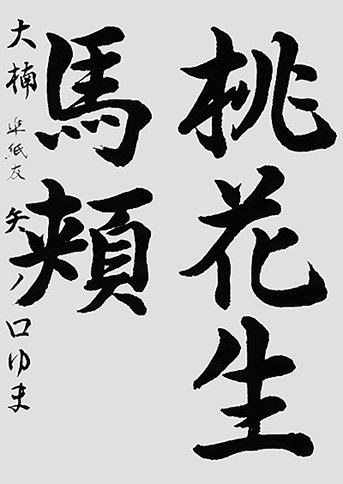 桃花生
馬頬
大楠 準紙友 矢ノ口ゆま